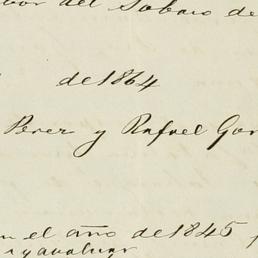 del Sabado de
de 1864
Perez y Rafael Gon
en el año de 1845
y avaluar